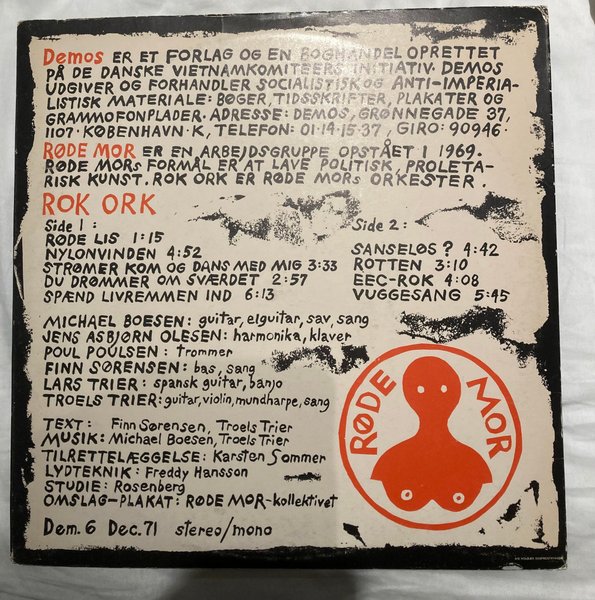 Demos ER ET FORLAG OG EN BOGHANDEL OPRETTET
PÅ DE DANSKE VIETNAMKOMITEERS INITIATIV. DEMOS
UDGIVER OG FORHANDLER SOCIALISTISK OG ANTI-IMPERIA-
LISTISK MATERIALE: BØGER, TIDSSKRIFTER, PLAKATER OG
GRAMMOFONPLADER. ADRESSE: DEMOS, GRØNNEGADE 37,
1107·KØBENHAVN·K, TELEFON: 01·14·15·37, GIRO: 90946·
RØDE MOR ER EN ARBEJDSGRUPPE OPSTÅET I 1969.
RØDE MORs FORMÅL ER AT LAVE POLITISK, PROLETA-
RISK KUNST. ROK ORK ER RØDE MORs ORKESTER.
ROK ORK
Side 1:
RØDE LIS 1:15
NYLONVINDEN 4:52
STRØMER KOM OG DANS MED MIG 3:33
DU DRØMMER OM SVÆRDET 2:57
SPÆND LIVREMMEN IND 6:13
Side 2:
SANSELØS? 4:42
ROTTEN 3:10
EEC-ROK 4:08
VUGGESANG 5:45
MICHAEL BOESEN: guitar, elguitar, sav, sang
JENS ASBJØRN OLESEN: harmonika, klaver
POUL POULSEN: trommer
FINN SØRENSEN: bas, sang
LARS TRIER: spansk guitar, banjo
TROELS TRIER: guitar, violin, mundharpe, sang
TEXT: Finn Sørensen, Troels Trier
MUSIK: Michael Boesen, Troels Trier
TILRETTELÆGGELSE: Karsten Sommer
LYDTEKNIK: Freddy Hansson
STUDIE: Rosenberg
OMSLAG-PLAKAT: RØDE MOR-kollektivet
Dem. 6 Dec. 71 stereo/mono
RØDE MOR